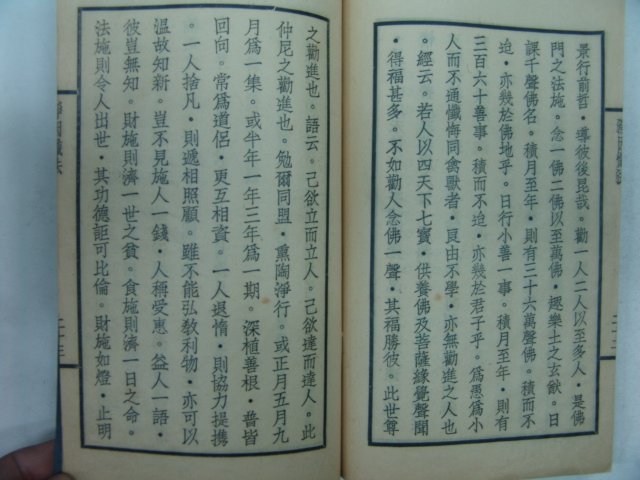 景行前哲。導彼後昆哉。勸一人二人以至多人。是佛
門之法施。念一佛二佛以至萬佛。趣樂土之玄猷。日
課千聲佛名。積月至年。則有三十六萬聲佛。積而不
迨。亦幾於佛地乎。日行小善一事。積月至年。則有
三百六十善事。積而不迨。亦幾於君子乎。爲愚爲小
人而不通懺悔同禽獸者。良由不學。亦無勸進之人也
。經云。若人以四天下七寶。供養佛及菩薩緣覺聲聞
。得福甚多。不如勸人念佛一聲。其福勝彼。此世尊
之勸進也。語云。己欲立而立人。己欲達而達人。此
仲尼之勸進也。勉爾同盟。熏陶淨行。或正月五月九
月爲一集。或半年一年三年爲一期。深植善根。普皆
回向。常爲道侶。更互相資。一人退惰。則協力提携
。一人捨凡。則遞相照顧。雖不能弘敎利物。亦可以
溫故知新。豈不見施人一錢。人稱受惠。益人一語。
彼豈無知。財施則濟一世之貧。食施則濟一日之命。
法施則令人出世。其功德詎可比倫。財施如燈。止明